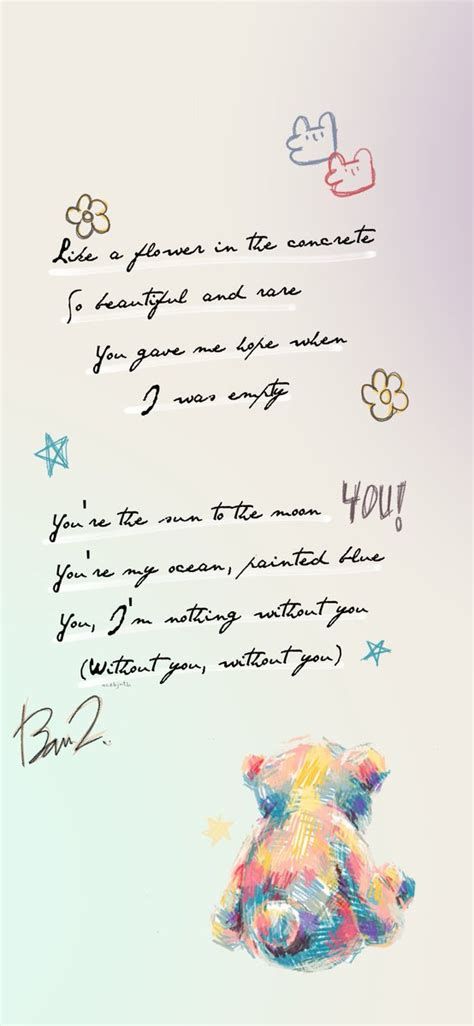 Like a flower in the concrete
So beautiful and rare
You gave me hope when
I was empty
You're the sun to the moon
YOU!
You're my ocean, painted blue
You, I'm nothing without you
(Without you, without you)